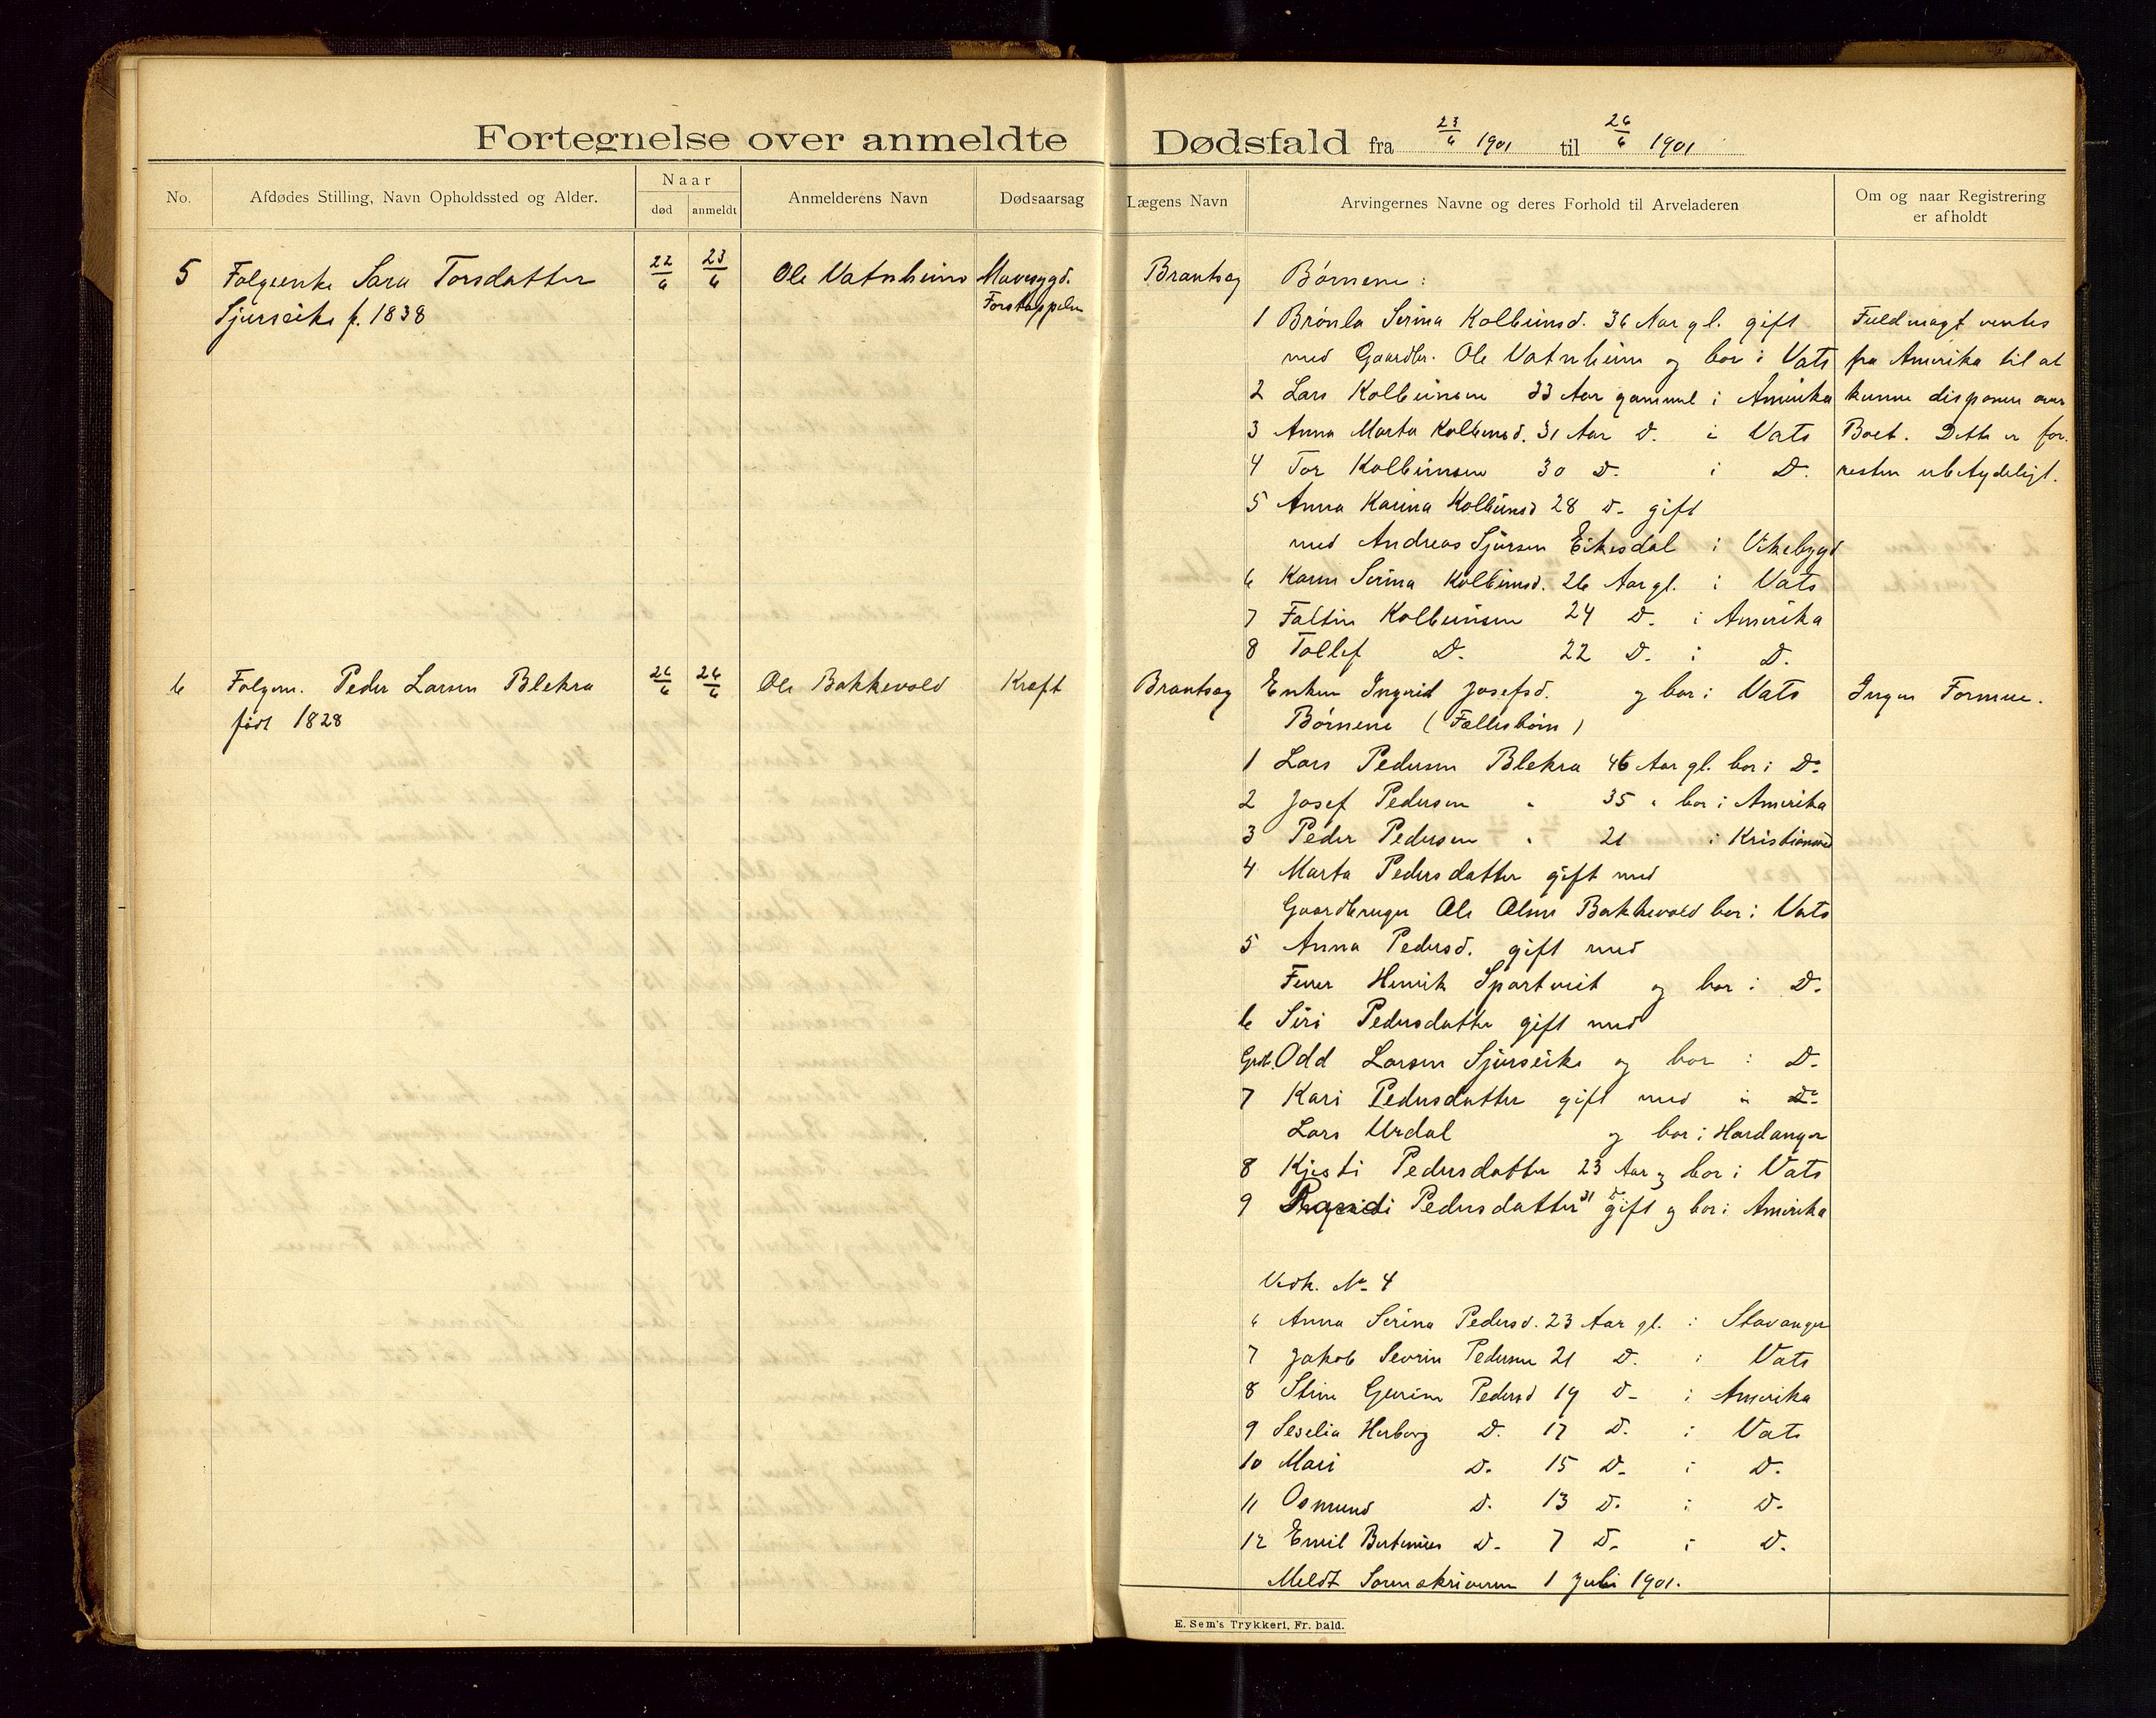 Fortegnelse over anmeldte Dødsfald fra 23/6 1901 til 26/6 1901
No.
Afdødes Stilling, Navn Opholdssted og Alder.
Naar
død
anmeldt
Anmelderens Navn
Dødsaarsag
Lægens Navn
Arvingernes Navne og deres Forhold til Arveladeren
Om og naar Registrering
er afholdt
5 Folgeenke Sara Torsdatter 22/6 23/6 Ole Vatnheim Mavesygd.
Sjurseike f. 1838 Forstoppelse
Brautseg Børnene:
1 Brønla Serina Kolbeinsd. 36 Aar gl. gift
med Gaardbr. Ole Vatnheim og bor i Vats
2 Lars Kolbeinsen 33 Aar gammel i Amerika
3 Anna Marta Kolbeinsd. 31 Aar D. i Vats
4 Tor Kolbeinsen 30 D. i D.
5 Anna Karina Kolbeinsd 28 D. gift
med Andreas Sjursen Eikesdal i Vikebygd
6 Karen Serina Kolbeinsd. 26 Aar gl. i Vats
7 Faltin Kolbeinsen 24 D. i Amerika
8 Tollef D. 22 D. i D.
Fuldmagt ventes
fra Amerika til at
kunne disponere over
Boet. Dette er for-
resten ubetydeligt.
6 Folgem. Peder Larsen Blekra 26/6 26/6 Ole Bakkevold Kræft
født 1828
Brautseg Enken Ingerid Josefsd. og bor i Vats Ingen Formue.
Børnene (Fællesbørn)
1 Lars Pedersen Blekra 46 Aar gl. bor i Do
2 Josef Pedersen " 35 " bor i Amerika
3 Peder Pedersen " 21 i Kristiansand
4 Marta Pedersdatter gift med
Gaardbruger Ole Olsen Bakkevold bor i Vats
5 Anna Pedersd. gift med
Henrik og bor i D.
6 Siri Pedersdatter gift med
Grdb. Odd Larsen Sjurseike og bor i D.
7 Kari Pedersdatter gift med i Do
Lars Urdal og bor i Hardanger
8 Kjesti Pedersdatter 23 Aar og bor i Vats
9 Pedersdatter 31 gift og bor i Amerika
Vedk. No 4
6 Anna Serina Pedersd. 23 Aar gl. i Stavanger
7 Jakob Sevrin Pedersen 21 D. i Vats
8 Stine Gurine Pedersd 19 D. i Amerika
9 Seselia Herborg D. 17 D. i Vats
10 Mari D. 15 D. i D.
11 Osmund D. 13 D. i D.
12 Emil Bertinius D. 7 D. i D.
Meldt Sorenskriveren 1 Juli 1901.
E. Sem's Trykkeri, Fr. hald.